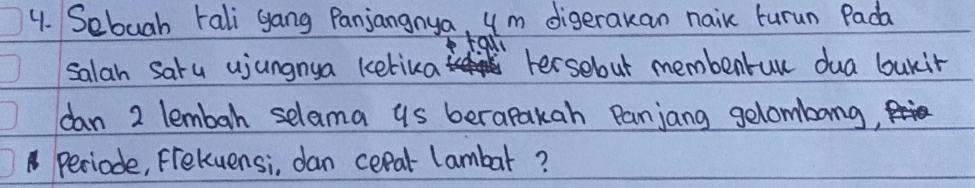 4. Sebuah tali yang Panjangnya 4 m digerakan naik turun Pada
Salah satu ujungnya ketika tali tersebut membentuk dua bukit
dan 2 lembah selama 4s berapakah Panjang gelombang,
Periode, Frekuensi, dan cepat lambat ?